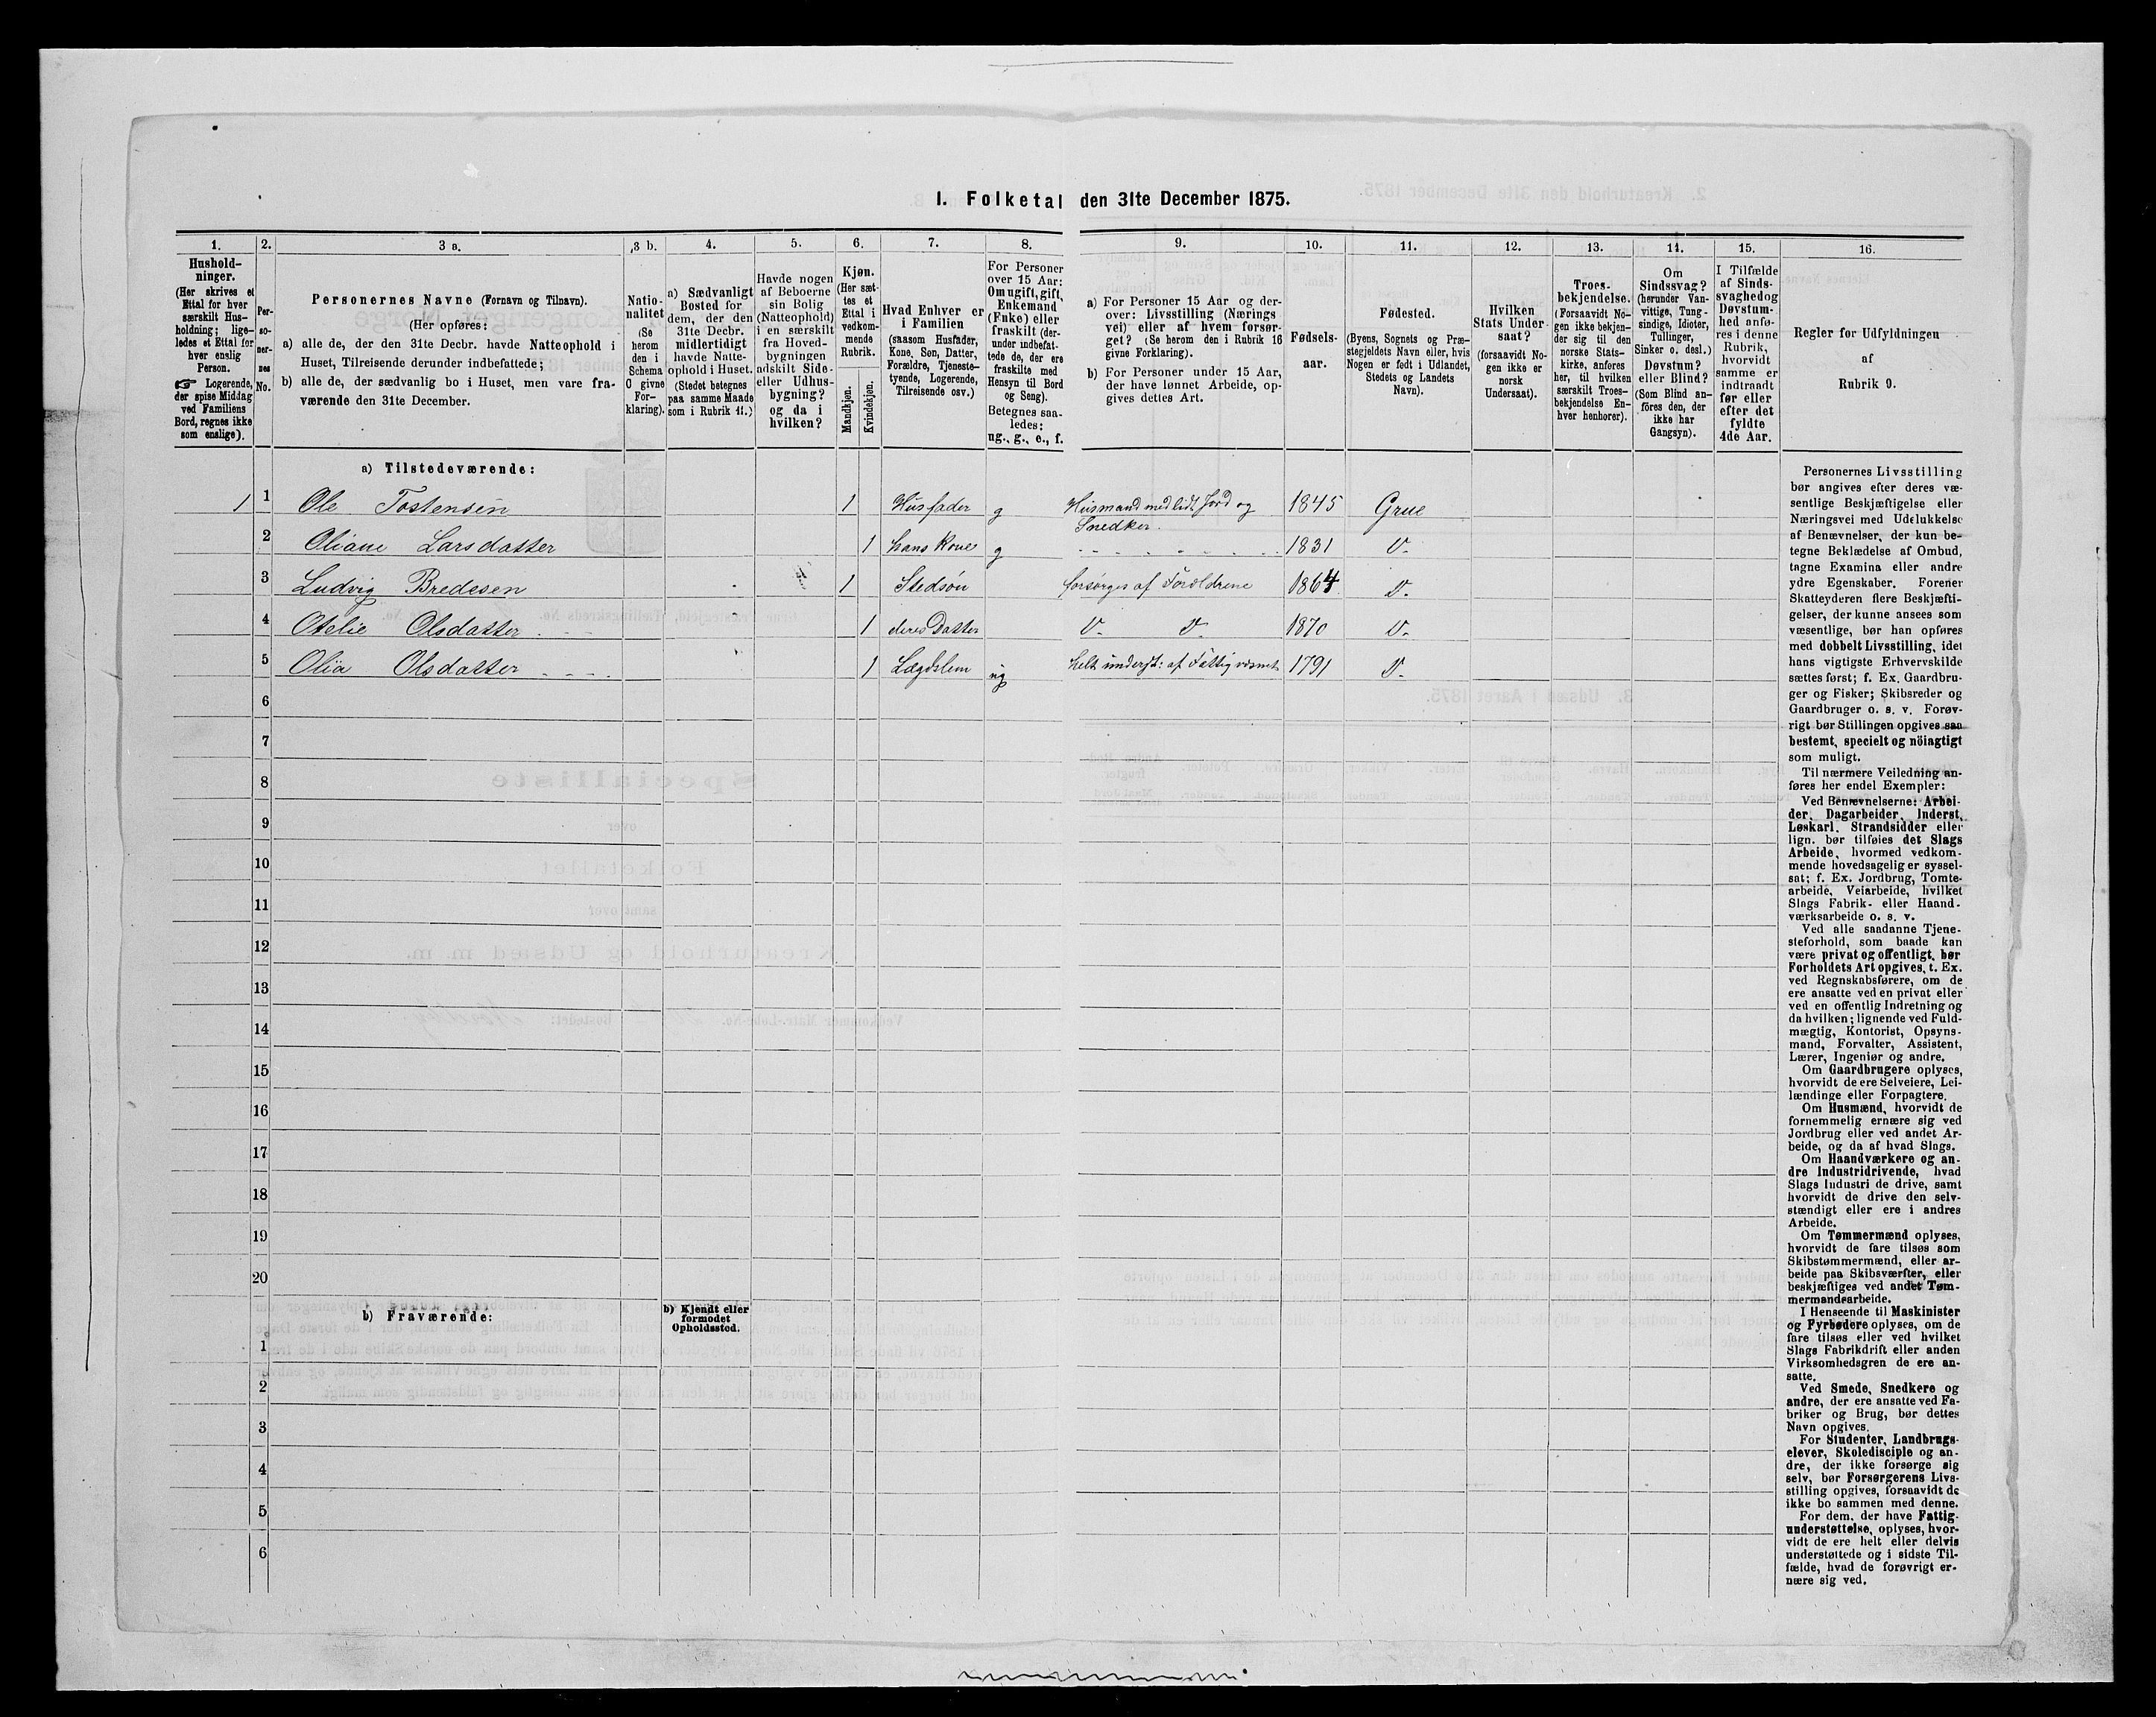 I. Folketal den 31te December 1875.
1.
2.
3 a.
3 b.
4.
5.
6.
7.
8.
9.
10.
11.
12.
13.
14.
15.
16.
Hushold-
ninger.
(Her skrives et
Ettal for hver
særskilt Hus-
holdning; lige-
ledes et Ettal for
hver enslig
Person.
☞ Logerende,
der spise Middag
ved Familiens
Bord, regnes ikke
som enslige).
Per-
so-
ner-
nes
No.
Personernes Navne (Fornavn og Tilnavn).
(Her opføres:
a) alle de, der den 31te Decbr. havde Natteophold i
Huset, Tilreisende derunder indbefattede;
b) alle de, der sædvanlig bo i Huset, men vare fra-
værende den 31te December.
Natio-
nalitet
(Se
herom
den i
Schema
C givne
For-
klaring).
a) Sædvanligt
Bosted for
dem, der den
31te Decbr.
midlertidigt
havde Natte-
ophold i Huset.
(Stedet betegnes
paa samme Maade
som i Rubrik 11.)
Havde nogen
af Beboerne
sin Bolig
(Natteophold)
i en særskilt
fra Hoved-
bygningen
adskilt Side-
eller Udhus-
bygning?
og da i
hvilken?
Kjøn.
(Her sæt-
tes et
Ettal i
vedkom-
mende
Rubrik.
Mandkjøn.
Kvindekjøn.
Hvad Enhver er
i Familien
(saasom Husfader,
Kone, Søn, Datter,
Forældre, Tjeneste-
tyende, Logerende,
Tilreisende osv.)
For Personer
over 15 Aar:
Om ugift, gift,
Enkemand
(Enke) eller
fraskilt (der-
under indbefat-
tede de, der ere
fraskilte med
Hensyn til Bord
og Seng).
Betegnes saa-
ledes:
ug., g., e., f.
a) For Personer 15 Aar og der-
over: Livsstilling (Nærings
vei) eller af hvem forsør-
get? (Se herom den i Rubrik 16
givne Forklaring).
b) For Personer under 15 Aar,
der have lønnet Arbeide, op-
gives dettes Art.
Fødsels-
aar.
Fødested.
(Byens, Sognets og Præ-
stegjeldets Navn eller, hvis
Nogen er født i Udlandet,
Stedets og Landets
Navn).
Hvilken
Stats Under-
saat?
(forsaavidt No-
gen ikke er
norsk
Undersaat).
Troes-
bekjendelse.
(Forsaavidt No-
gen ikke bekjen-
der sig til den
norske Stats-
kirke, anføres
her, til hvilken
særskilt Troes-
bekjendelse En-
hver henhører).
Om
Sindssvag?
(herunder Van-
vittige, Tung-
sindige, Idioter,
Tullinger,
Sinker o. desl.)
Døvstum?
eller Blind?
(Som Blind an-
føres den, der
ikke har
Gangsyn).
I Tilfælde
af Sinds-
svaghed og
Døvstum-
hed anfø-
res i denne
Rubrik,
hvorvidt
samme er
indtraadt
før eller
efter det
fyldte
4de Aar.
Regler for Udfyldningen
af
Rubrik 9.
a) Tilstedeværende:
1 1 Ole Tostensen 1 Husfader g Husmand med lidt Jord og Snedker. 1845 Grue
2 Oliane Larsdatter 1 hans Kone g - - - - - - 1831 D.
3 Ludvig Bredesen 1 Stedsøn forsørges af Forældrene 1864 D.
4 Otelie Olsdatter 1 deres Datter D. D. 1870 D.
5 Olia Olsdatter 1 Lægdslem ug helt underst: af Fattigvæsnet 1791 D.
6
7
8
9
10
11
12
13
14
15
16
17
18
19
20
b) Fraværende:
b) Kjendt eller
formodet
Opholdssted.
1
2
3
4
5
6
Personernes Livsstilling
bør angives efter deres væ-
sentlige Beskjæftigelse eller
Næringsvei med Udelukkelse
af Benævnelser, der kun be-
tegne Beklædelse af Ombud,
tagne Examina eller andre
ydre Egenskaber. Forener
Skatteyderen flere Beskjæfti-
gelser, der kunne ansees som
væsentlige, bør han opføres
med dobbelt Livsstilling, idet
hans vigtigste Erhvervskilde
sættes først; f. Ex. Gaardbru-
ger og Fisker; Skibsreder og
Gaardbruger o. s. v. Forøv-
rigt bør Stillingen opgives saa
bestemt, specielt og nöiagtigt
som muligt.
Til nærmere Veiledning an-
føres her endel Exempler:
Ved Benævnelserne: Arbei-
der, Dagarbeider, Inderst,
Løskarl, Strandsidder eller
lign. bør tilføies det Slags
Arbeide, hvormed vedkom-
mende hovedsagelig er syssel-
sat; f. Ex. Jordbrug, Tomte-
arbeide, Veiarbeide, hvilket
Slags Fabrik- eller Haand-
værksarbeide o. s. v.
Ved alle saadanne Tjene-
steforhold, som baade kan
være privat og offentligt, bør
Forholdets Art opgives, t. Ex.
ved Regnskabsførere, om de
ere ansatte ved en privat eller
ved en offentlig Indretning og
da hvilken; lignende ved Fuld-
mægtig, Kontorist, Opsyns-
mand, Forvalter, Assistent,
Lærer, Ingeniør og andre.
Om Gaardbrugere oplyses,
hvorvidt de ere Selveiere, Lei-
lændinge eller Forpagtere.
Om Husmænd, hvorvidt de
fornemmelig ernære sig ved
Jordbrug eller ved andet Ar-
beide, og da af hvad Slags.
Om Haandværkere og an-
dre Industridrivende, hvad
Slags Industri de drive, samt
hvorvidt de drive den selv-
stændigt eller ere i andres
Arbeide.
Om Tømmermænd oplyses,
hvorvidt de fare tilsøs som
Skibstømmermænd, eller ar-
beide paa Skibsværfter, eller
beskjæftiges ved andet Tøm-
mermandsarbeide.
I Henseende til Maskinister
og Fyrbødere oplyses, om de
fare tilsøs eller ved hvilket
Slags Fabrikdrift eller anden
Virksomhedsgren de ere an-
satte.
Ved Smede, Snedkere og
andre, der ere ansatte ved Fa-
briker og Brug, bør dettes
Navn opgives.
For Studenter, Landbrugs-
elever, Skoledisciple og an-
dre, der ikke forsørge sig
selv, bør Forsørgerens Livs-
stilling opgives, forsaavidt de
ikke bo sammen med denne.
For dem, der have Fattig-
understøttelse, oplyses, hvor-
vidt de ere helt eller delvis
understøttede og i sidste Til-
fælde, hvad de forøvrigt er-
nære sig ved.